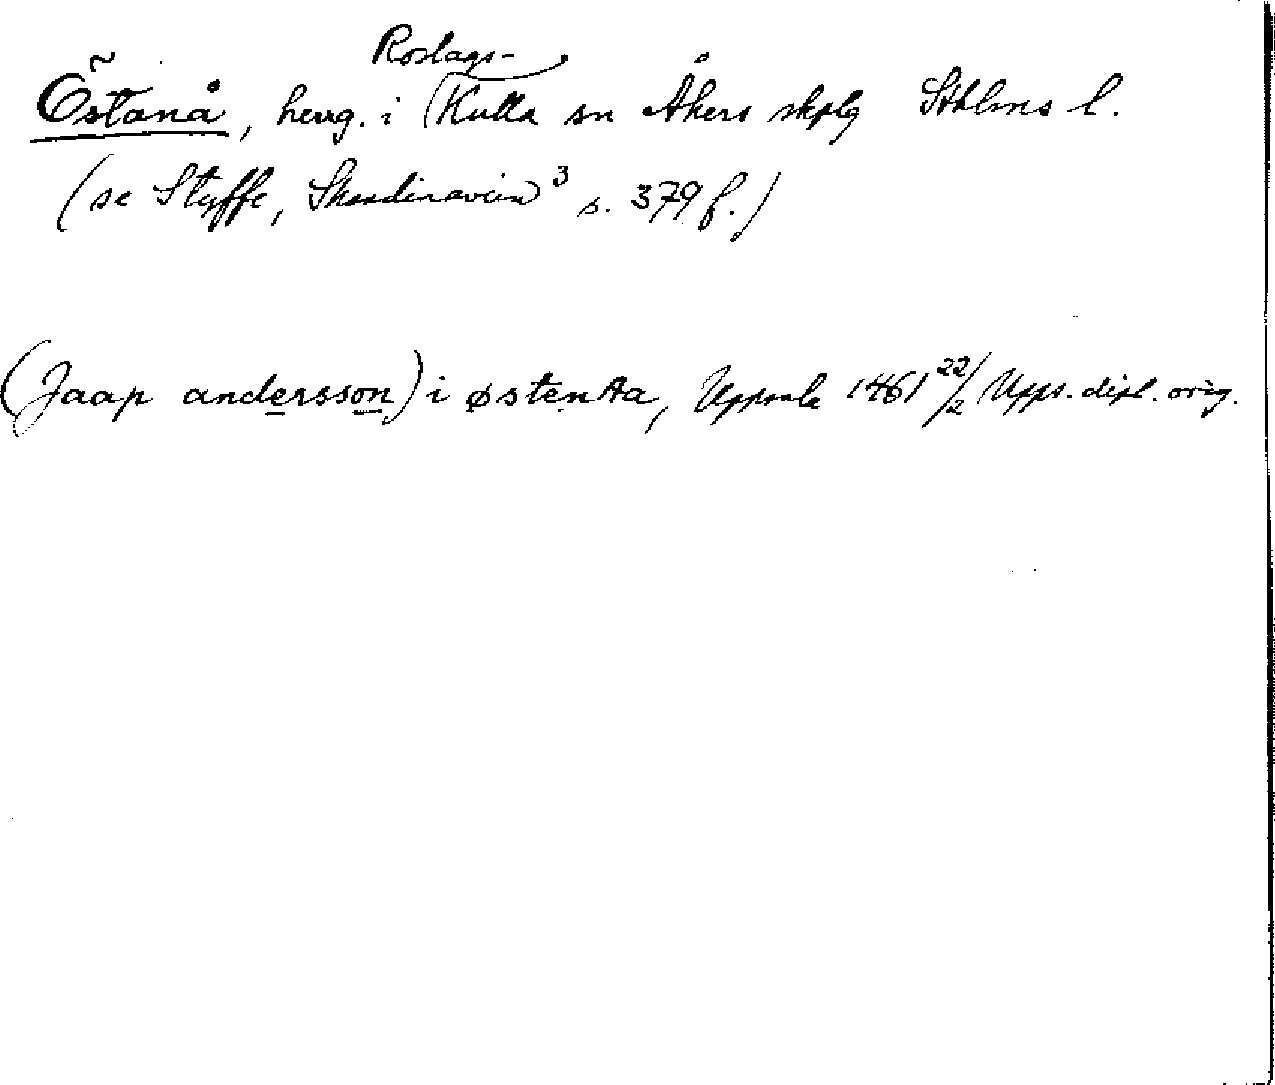 Östanå, herrg. i Roslags-Kulla sn Åkers skplg Sthlms l.
(se Styffe, Skandinavien³ s. 379 f.)
(Jaap andersson) i østen Aa, Uppsala 1461 22/2 Upps. dipl. orig.